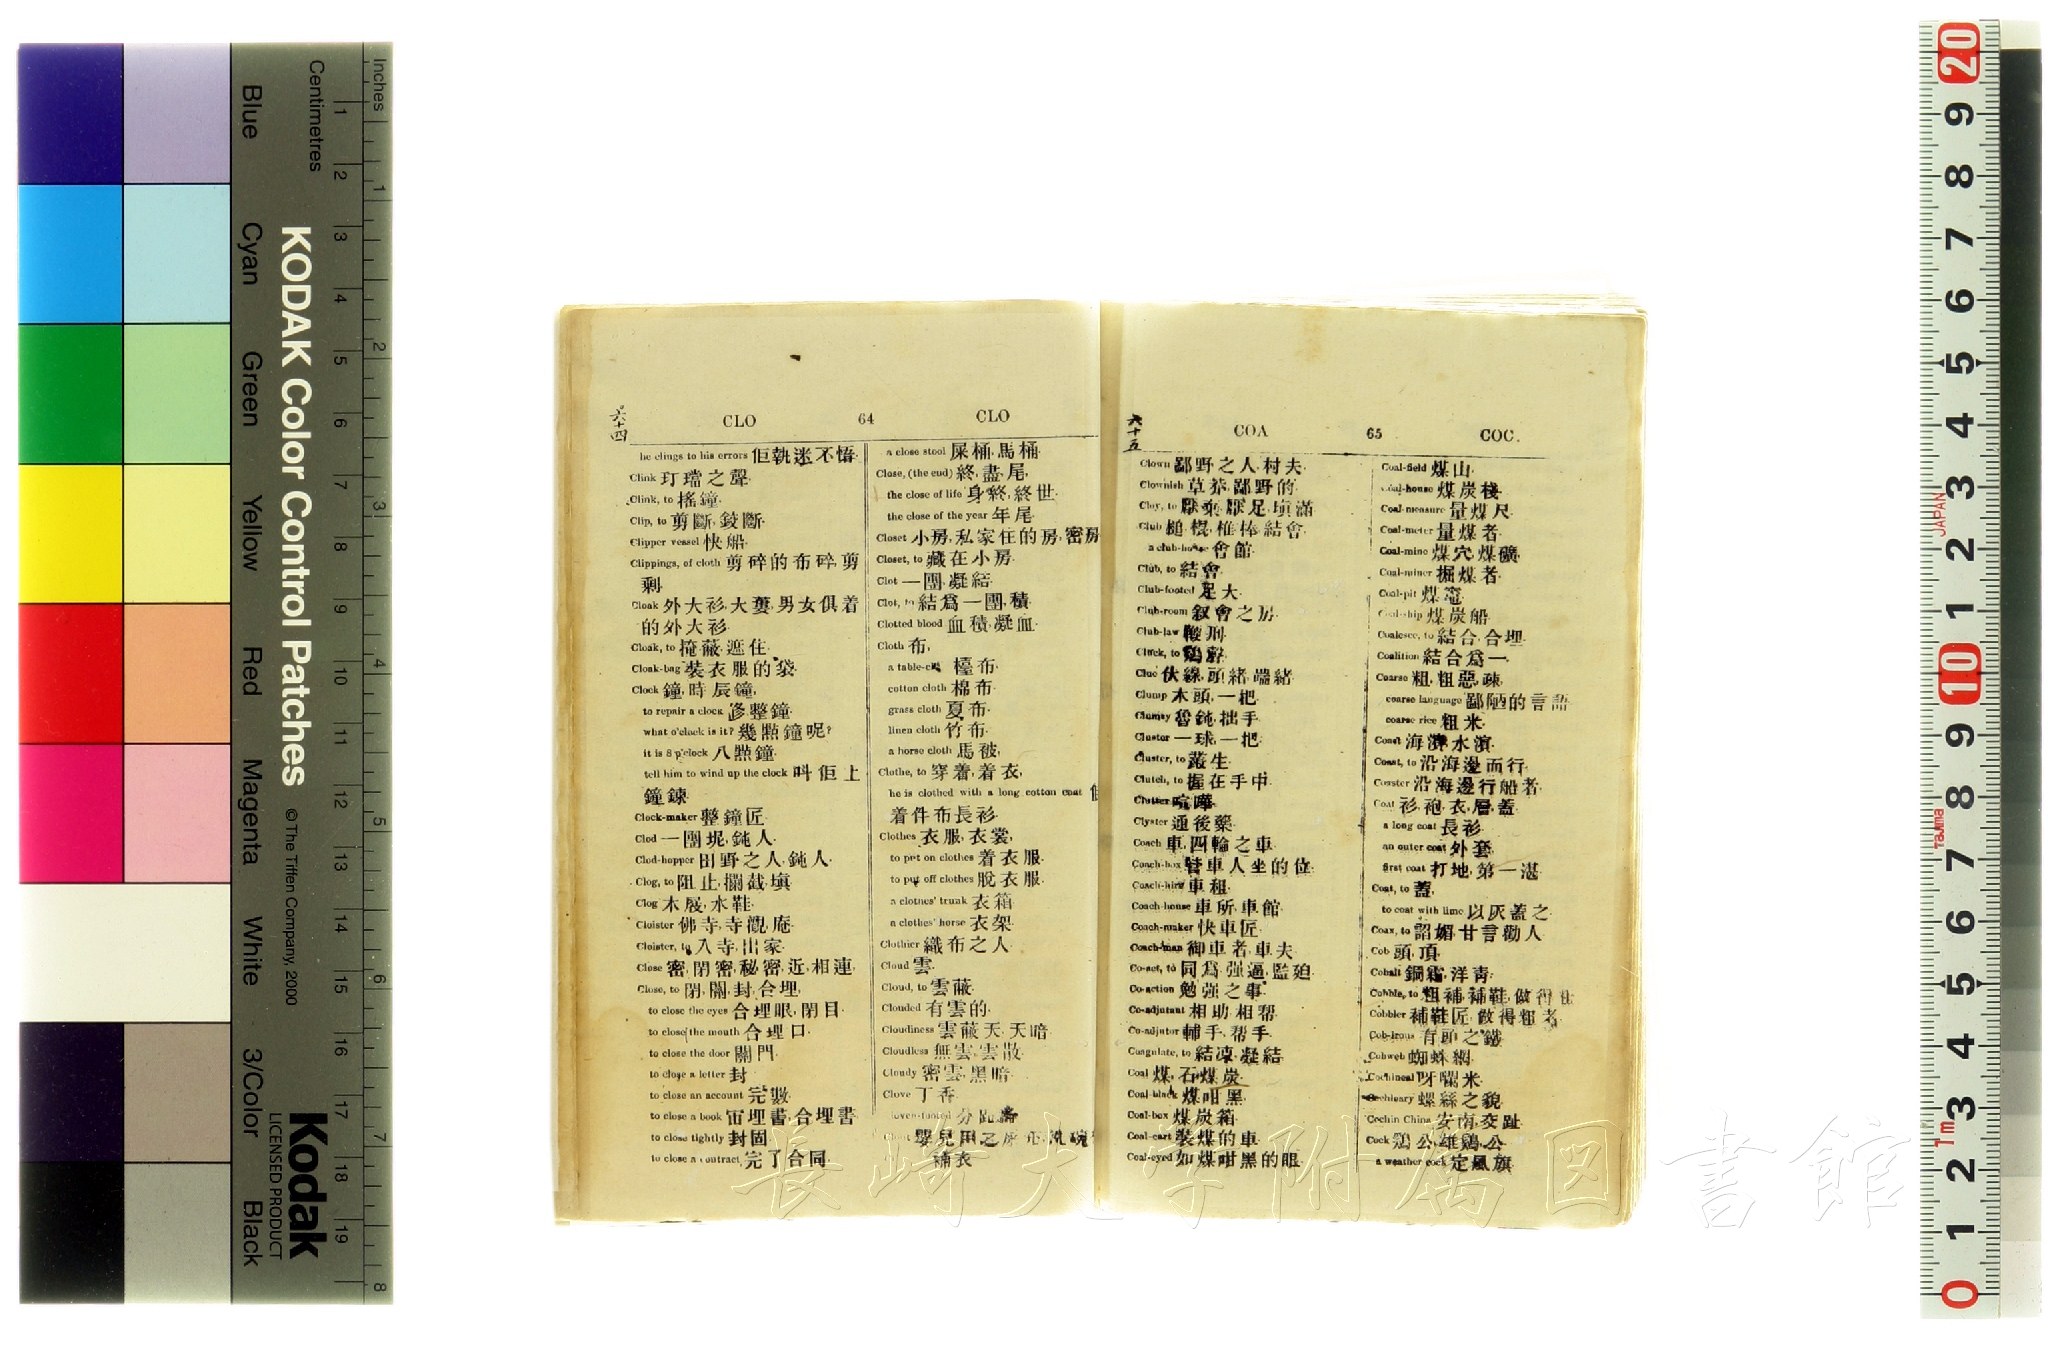 Inches
Centimetres
KODAK Color Control Patches
© The Tiffen Company, 2000
Kodak
LICENSED PRODUCT
Blue
Cyan
Green
Yellow
Red
Magenta
White
3/Color
Black
六十四
CLO 64 CLO
he clings to his errors 佢執迷不悟
Clink 玎璫之聲
Clink, to 搖鐘
Clip, to 剪斷
Clipper vessel 快船
Clippings, of cloth 剪碎的布碎, 剪
剩
Cloak 外大衫, 男女俱着
的外大衫
Cloak, to 掩蔽, 遮住
Cloak-bag 裝衣服的袋
Clock 鐘, 時辰鐘
to repair a clock 整鐘
what o'clock is it? 幾點鐘呢?
it is 8 o'clock 八點鐘
tell him to wind up the clock 叫佢上
鐘鍊
Clock-maker 整鐘匠
Clod 一團坭, 鈍人
Clod-hopper 田野之人, 鈍人
Clog, to 阻止, 攔截, 填
Clog 木屐, 水鞋
Cloister 佛寺, 寺觀, 庵
Cloister, to 入寺, 出家
Close 密, 閉密, 秘密, 近, 相連
Close, to 閉, 關, 封, 合埋
to close the eyes 合埋眼, 閉目
to close the mouth 合埋口
to close the door 關門
to close a letter 封
to close an account 完數
to close a book 合埋書
to close tightly 封固
to close a contract 完了合同
a close stool 屎桶, 馬桶
Close, (the end) 終, 盡, 尾
the close of life 身終, 終世
the close of the year 年尾
Closet 小房, 私家住的房, 密房
Closet, to 藏在小房
Clot 一團, 凝結
Clot, to 結爲一團, 積
Clotted blood 血積, 凝血
Cloth 布
a table-cloth 檯布
cotton cloth 棉布
grass cloth 夏布
linen cloth 竹布
a horse cloth 馬被
Clothe, to 穿着, 着衣
he is clothed with a long cotton coat 佢
着件布長衫
Clothes 衣服, 衣裳
to put on clothes 着衣服
to put off clothes 脫衣服
a clothes' trunk 衣箱
a clothes' horse 衣架
Clothier 織布之人
Cloud 雲
Cloud, to 雲蔽
Clouded 有雲的
Cloudiness 雲蔽天, 天暗
Cloudless 無雲, 雲散
Cloudy 密雲, 黑暗
Clove 丁香
補衣
六十五
COA 65 COC.
Clown 鄙野之人, 村夫
Clownish 草莽, 鄙野的
Cloy, to 厭足, 填滿
Club 槌棍, 椎棒, 結會
a club-house 會館
Club, to 結會
Club-footed 足大
Club-room 叙會之房
Club-law 鞭刑
Cluck, to
Clue 伏線, 頭緒, 端緒
Clump 木頭, 一把
Clumsy 魯鈍, 拙手
Cluster 一球, 一把
Cluster, to 叢生
Clutch, to 握在手中
Clutter 喧嘩
Clyster 通後藥
Coach 車, 四輪之車
Coach-box 管車人坐的位
Coach-hire 車租
Coach-house 車所, 車館
Coach-maker 快車匠
Coach-man 御車者, 車夫
Co-act, to 同爲, 强逼, 監迫
Co-action 勉强之事
Co-adjutant 相助, 相帮
Co-adjutor 輔手, 帮手
Coagulate, to 結凍, 凝結
Coal 煤, 石煤炭
Coal-black 煤咁黑
Coal-box 煤炭箱
Coal-cart 裝煤的車
Coal-eyed 如煤咁黑的眼
Coal-field 煤山
Coal-house 煤炭棧
Coal-measure 量煤尺
Coal-meter 量煤者
Coal-mine 煤穴, 煤礦
Coal-miner 掘煤者
Coal-pit 煤窿
Coal-ship 煤炭船
Coalesce, to 結合, 合埋
Coalition 結合爲一
Coarse 粗, 粗惡, 疎
coarse language 鄙陋的言語
coarse rice 粗米
Coast 海濱, 水濱
Coast, to 沿海邊而行
Coaster 沿海邊行船者
Coat 衫, 袍, 衣, 層, 蓋
a long coat 長衫
an outer coat 外套
first coat 打地, 第一湛
Coat, to 蓋
to coat with lime 以灰蓋之
Coax, to 諂媚, 甘言勸人
Cob 頭, 頂
Cobalt 洋青
Cobble, to 粗補, 補鞋
Cobbler 補鞋匠, 做得粗者
Cob-irons 有頭之鐵
Cobweb 蜘蛛網
Cochineal 呀囒米
Cochleary 螺絲之貌
Cochin China 安南, 交趾
Cock 鷄公, 雄鷄, 公
a weather cock 定風旗
長崎大学附属図書館
JAPAN
Tajima
1m